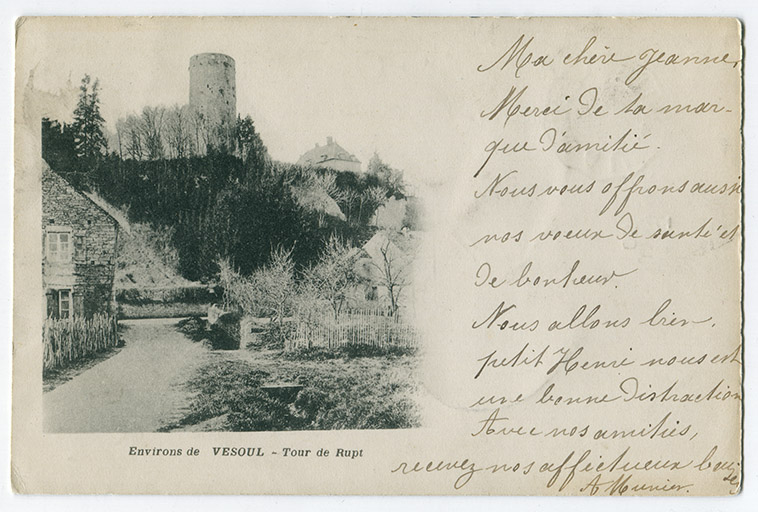 Ma chère Jeanne,
Merci de ta mar-
que d'amitié.
Nous vous offrons aussi
nos voeux de santé et
de bonheur.
Nous allons bien,
petit Henri nous est
une bonne distraction
Avec nos amitiés,
recevez nos affectueux baisers
A Munier.
Environs de VESOUL - Tour de Rupt